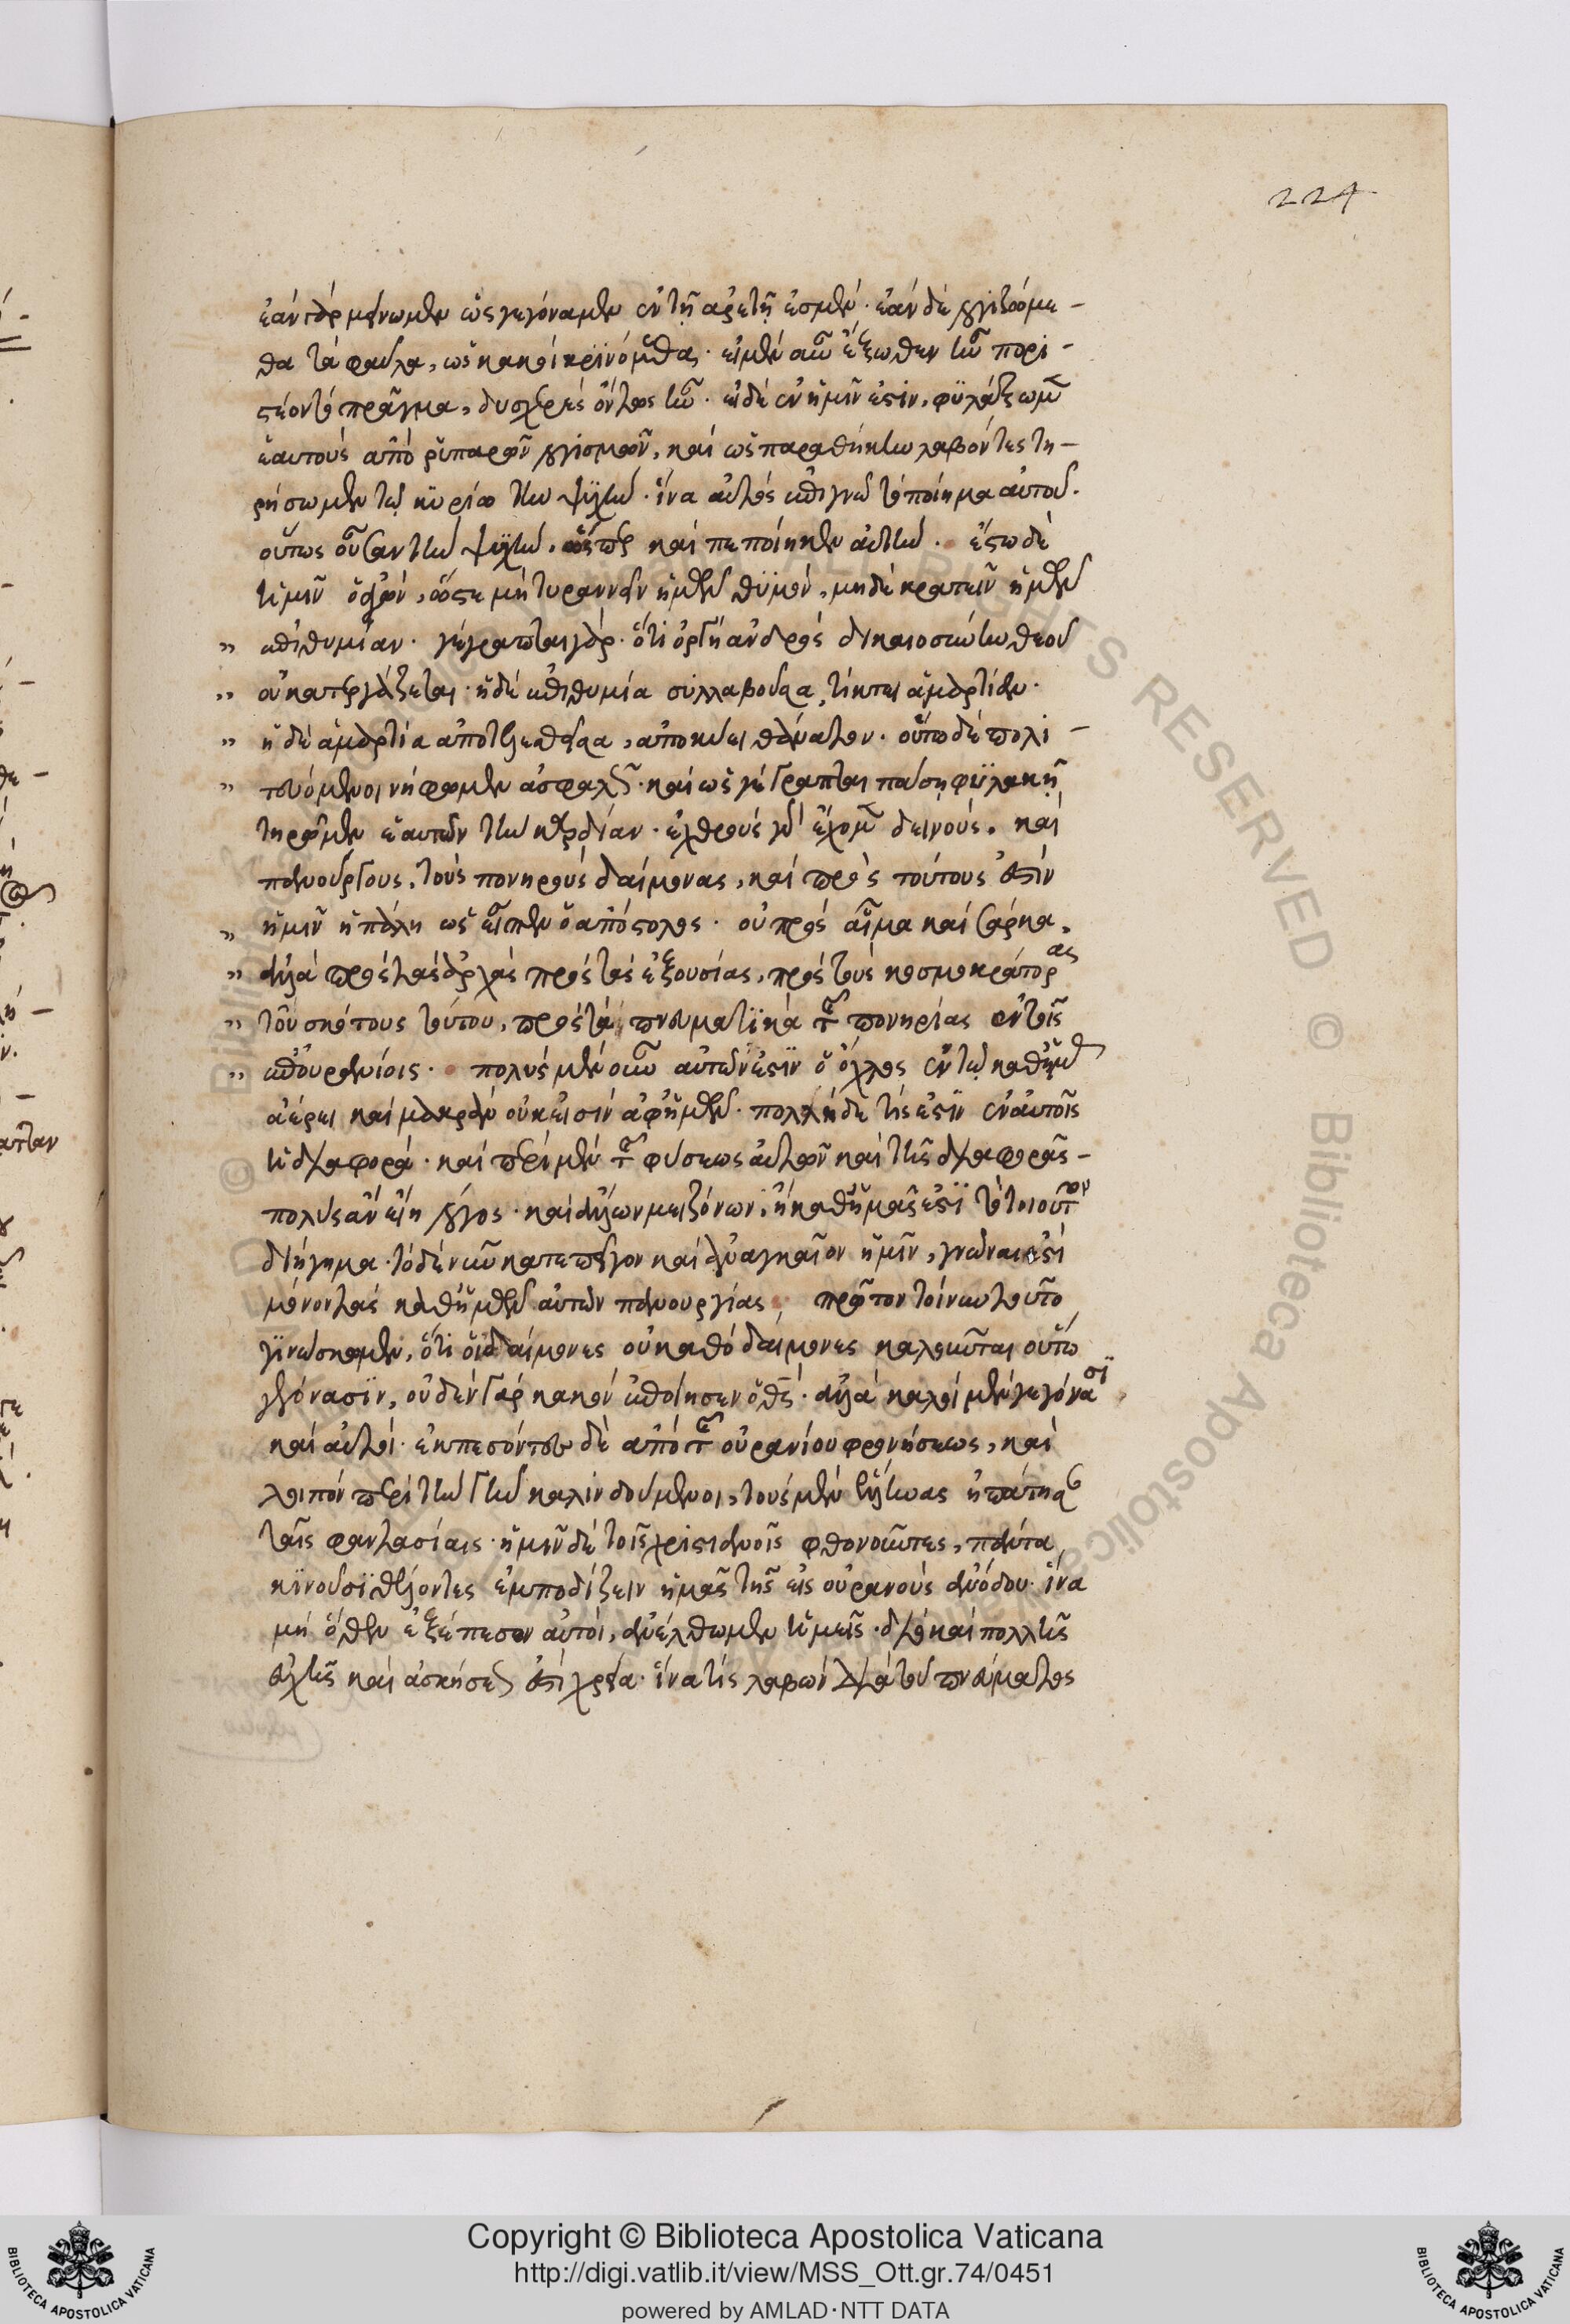 224
ἐὰν γὰρ μείνωμεν ὡς γεγόναμεν ἐν τῇ ἀρετῇ ἐσμέν· ἐὰν δὲ λογιζώμε-
θα τὰ φαῦλα, ὡς κακοὶ κρινόμεθα· εἰ μὲν οὖν ἔξωθεν ἦν πορι-
στέον τὸ πρᾶγμα, δυσχερὲς ὄντως ἦν· εἰ δὲ ἐν ἡμῖν ἐστιν, φυλάξωμεν
ἑαυτοὺς ἀπὸ ῥυπαρῶν λογισμῶν, καὶ ὡς παραθήκην λαβόντες τη-
ρήσωμεν τῷ κυρίῳ τὴν ψυχήν· ἵνα αὐτὸς ἐπιγνῷ τὸ ποίημα αὐτοῦ.
οὕτως οὖσαν τὴν ψυχήν, ὥσπερ καὶ πεποίηκεν αὐτήν. ἔστω δὲ
ἡμῖν ὁ ἀγών, ὥστε μὴ τυραννεῖν ἡμῶν θυμόν, μηδὲ κρατεῖν ἡμῶν
" ἐπιθυμίαν· γέγραπται γάρ· ὅτι ὀργὴ ἀνδρὸς δικαιοσύνην θεοῦ
" οὐ κατεργάζεται· ἡ δὲ ἐπιθυμία συλλαβοῦσα, τίκτει ἁμαρτίαν·
" ἡ δὲ ἁμαρτία ἀποτελεσθεῖσα, ἀποκύει θάνατον. οὕτω δὲ πολι-
" τευόμενοι νήφωμεν ἀσφαλῶς· καὶ ὡς γέγραπται πάσῃ φυλακῇ
τηρῶμεν ἑαυτῶν τὴν καρδίαν· ἐχθροὺς γὰρ ἔχομεν δεινούς, καὶ
πανούργους, τοὺς πονηροὺς δαίμονας, καὶ πρὸς τούτους ἐστὶν
" ἡμῖν ἡ πάλη ὡς εἶπεν ὁ ἀπόστολος· οὐ πρὸς αἷμα καὶ σάρκα,
" ἀλλὰ πρὸς τὰς ἀρχὰς πρὸς τὰς ἐξουσίας, πρὸς τοὺς κοσμοκράτορας
" τοῦ σκότους τούτου, πρὸς τὰ πνευματικὰ τῆς πονηρίας ἐν τοῖς
" ἐπουρανίοις. πολὺς μὲν οὖν αὐτῶν ἐστιν ὁ ὄχλος ἐν τῷ καθ' ἡμᾶς
ἀέρει καὶ μακρὰν οὐκ εἰσὶν ἀφ' ἡμῶν· πολλὴ δέ τίς ἐστιν ἐν αὐτοῖς
ἡ διαφορά· καὶ περὶ μὲν τῆς φύσεως αὐτῶν καὶ τῆς διαφορᾶς-
πολὺς ἂν εἴη λόγος· καὶ ἄλλων μειζόνων, ἢ καθ' ἡμᾶς ἐστι τὸ τοιοῦτον
διήγημα· τὸ δὲ νῦν κατεπεῖγον καὶ ἀναγκαῖον ἡμῖν, γνῶναι ἐστὶ
μόνον τὰς καθ' ἡμῶν αὐτῶν πανουργίας. πρῶτον τοίνυν τοῦτο
γινώσκωμεν, ὅτι οἱ δαίμονες οὐ καθὸ δαίμονες καλοῦνται οὕτω
γεγόνασιν, οὐδὲν γὰρ κακὸν ἐποίησεν ὁ θεός· ἀλλὰ καλοὶ μὲν γεγόνασι
καὶ αὐτοί· ἐκπεσόντες δὲ ἀπὸ τῆς οὐρανίου φρονήσεως, καὶ
λοιπὸν περὶ τὴν γῆν καλινδούμενοι, τοὺς μὲν ἕλληνας ἠπάτησαν
ταῖς φαντασίαις· ἡμῖν δὲ τοῖς χριστιανοῖς φθονοῦντες, πάντα
κινοῦσι θέλοντες ἐμποδίζειν ἡμᾶς τῆς εἰς οὐρανοὺς ἀνόδου· ἵνα
μὴ ὅθεν ἐξέπεσον αὐτοί, ἀνέλθωμεν ἡμεῖς· διὸ καὶ πολλῆς
εὐχῆς καὶ ἀσκήσεώς ἐστι χρεία· ἵνα τὶς λαβὼν διὰ τοῦ πνεύματος